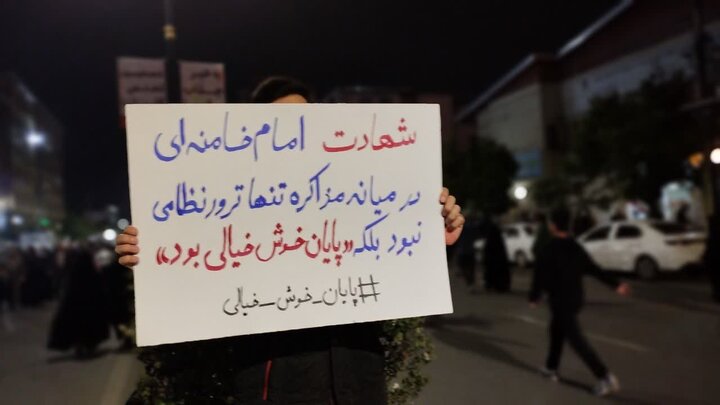 شهادت امام خامنه‌ای
در میانه مذاکره تنها ترور نظامی
نبود بلکه «پایان خوش خیالی بود»
#پایان_خوش_خیالی